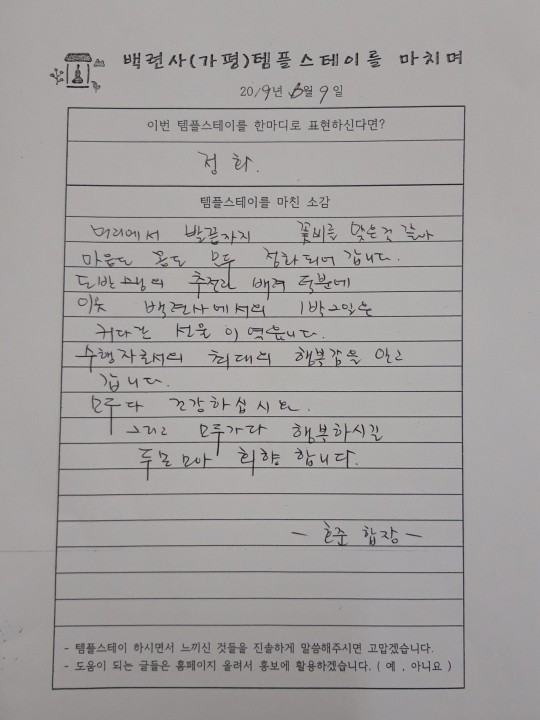 백련사(가평)템플스테이를 마치며
2019년 6월 9일
이번 템플스테이를 한마디로 표현하신다면?
정화.
템플스테이를 마친 소감
머리에서 발끝까지 꽃비를 맞은것 같아
마음도 몸도 모두 정화되어 갑니다.
도반 의 추천과 배려 덕분에
이뤄 백련사에서의 1박2일은
커다란 선물이였습니다.
수행자로서의 최대의 행복감을 안고
갑니다.
모두다 건강하십시요.
그리고 모두가다 행복하시길
두손모아 회향합니다.
- 효준 합장 -
- 템플스테이 하시면서 느끼신 것들을 진솔하게 말씀해주시면 고맙겠습니다.
- 도움이 되는 글들은 홈페이지 올려서 홍보에 활용하겠습니다. ( 예 , 아니요 )